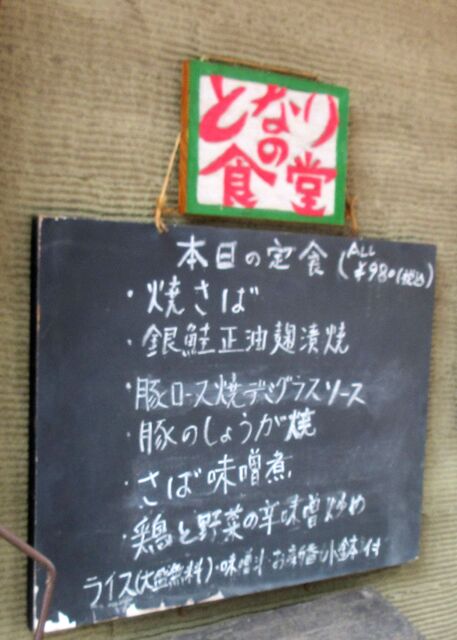 となりの
食堂
本日の定食 (ALL ¥980(税込)
・焼さば
・銀鮭正油麹漬焼
・豚ロース焼デミグラスソース
・豚のしょうが焼
・さば味噌煮
・鶏と野菜の辛味噌炒め
ライス(大盛無料)・味噌汁・お新香・小鉢付